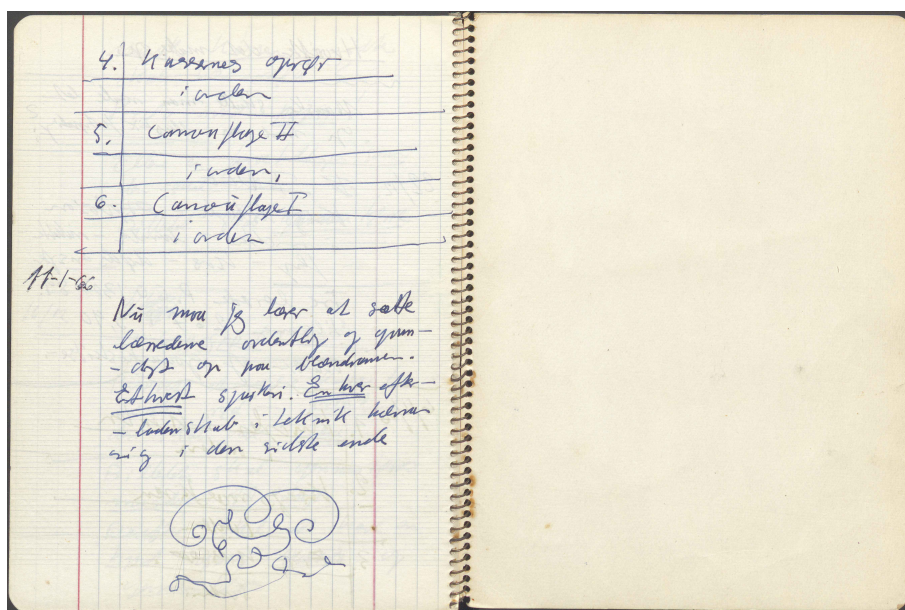 4. Kassernes oprør
i orden
5. Camouflage II
i orden,
6. Camouflage I
i orden
11-1-66
Nu maa jeg lærer at sætte
lærrederne ordentlig og grun-
-digt op paa blændramen.
Ethvert sjuskeri. En hver efter-
-ladenskab i teknik hævner
sig i den sidste ende